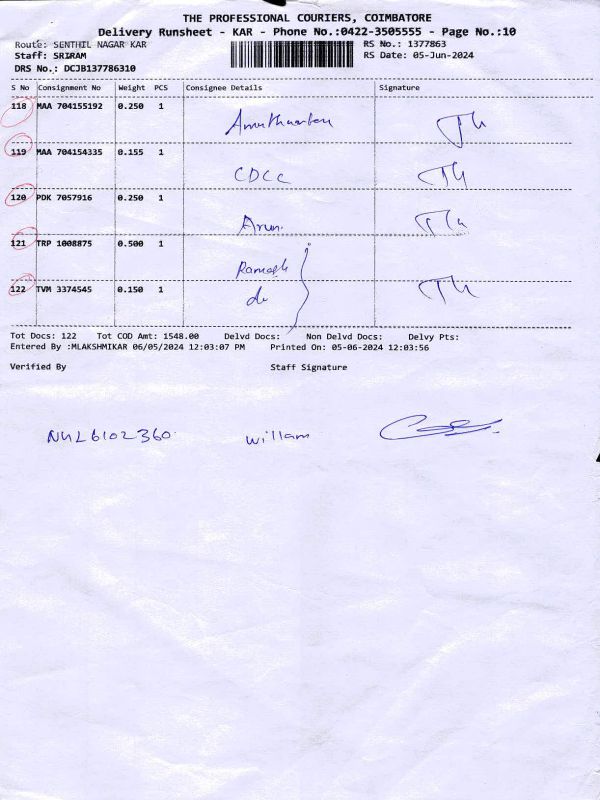 THE PROFESSIONAL COURIERS, COIMBATORE
Delivery Runsheet - KAR - Phone No.:0422-3505555 - Page No.:10
Route: SENTHIL NAGAR KAR RS No.: 1377863
Staff: SRIRAM RS Date: 05-Jun-2024
DRS No.: DCJB137786310
S No Consignment No Weight PCS Consignee Details Signature
118 MAA 704155192 0.250 1
119 MAA 704154335 0.155 1
CDCC
120 PDK 7057916 0.250 1
Arun
121 TRP 1008875 0.500 1
Ramesh
122 TVM 3374545 0.150 1
do
Tot Docs: 122 Tot COD Amt: 1548.00 Delvd Docs: Non Delvd Docs: Delvy Pts:
Entered By :MLAKSHMIKAR 06/05/2024 12:03:07 PM Printed On: 05-06-2024 12:03:56
Verified By Staff Signature
NHL6102360 Willam